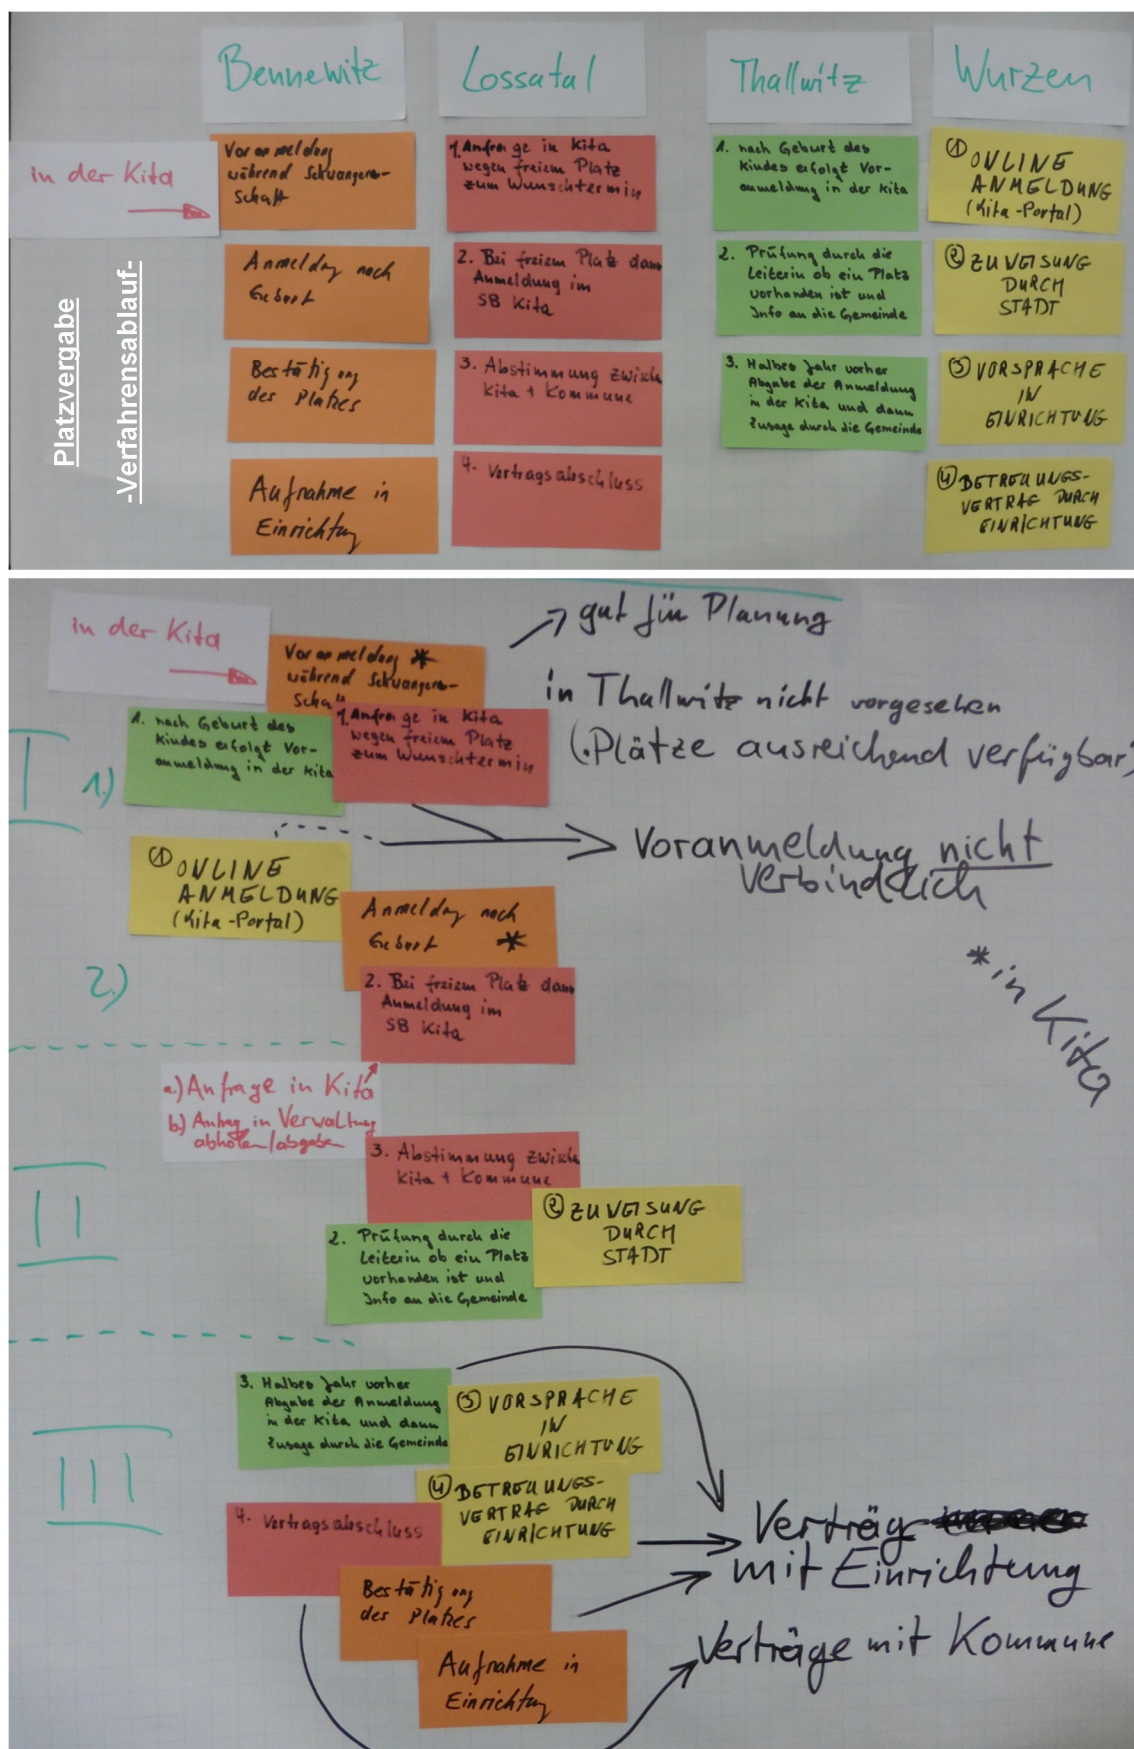 Bennewitz
Lossatal
Thallwitz
Wurzen
in der Kita
Platzvergabe
-Verfahrensablauf-
Voranmeldung
während Schwanger-
schaft
Anmeldung nach
Geburt
Bestätigung
des Platzes
Aufnahme in
Einrichtung
1. Anfrage in Kita
wegen freiem Platz
zum Wunschtermin
2. Bei freiem Platz dann
Anmeldung im
SB Kita
3. Abstimmung zwische
Kita + Kommune
4. Vertragsabschluss
1. nach Geburt des
Kindes erfolgt Vor-
anmeldung in der Kita
2. Prüfung durch die
Leiterin ob ein Platz
vorhanden ist und
Info an die Gemeinde
3. Halbes Jahr vorher
Abgabe der Anmeldung
in der Kita und dann
Zusage durch die Gemeinde
① ONLINE
ANMELDUNG
(Kita-Portal)
② ZUWEISUNG
DURCH
STADT
③ VORSPRACHE
IN
EINRICHTUNG
④ BETREUUNGS-
VERTRAG DURCH
EINRICHTUNG
in der Kita
gut für Planung
Voranmeldung *
während Schwanger-
schaft
in Thallwitz nicht vorgesehen
(Plätze ausreichend verfügbar)
I
1.)
1. nach Geburt des
Kindes erfolgt Vor-
anmeldung in der Kita
1. Anfrage in Kita
wegen freiem Platz
zum Wunschtermin
Voranmeldung nicht
verbindlich
① ONLINE
ANMELDUNG
(Kita-Portal)
Anmeldung nach
Geburt *
* in Kita
2.)
2. Bei freiem Platz dann
Anmeldung im
SB Kita
a.) Anfrage in Kita
b.) Antrag in Verwaltung
abholen/abgeben
II
3. Abstimmung zwische
Kita + Kommune
② ZUWEISUNG
DURCH
STADT
2. Prüfung durch die
Leiterin ob ein Platz
vorhanden ist und
Info an die Gemeinde
III
3. Halbes Jahr vorher
Abgabe der Anmeldung
in der Kita und dann
Zusage durch die Gemeinde
③ VORSPRACHE
IN
EINRICHTUNG
④ BETREUUNGS-
VERTRAG DURCH
EINRICHTUNG
4. Vertragsabschluss
Bestätigung
des Platzes
Aufnahme in
Einrichtung
Verträg
mit Einrichtung
Verträge mit Kommune